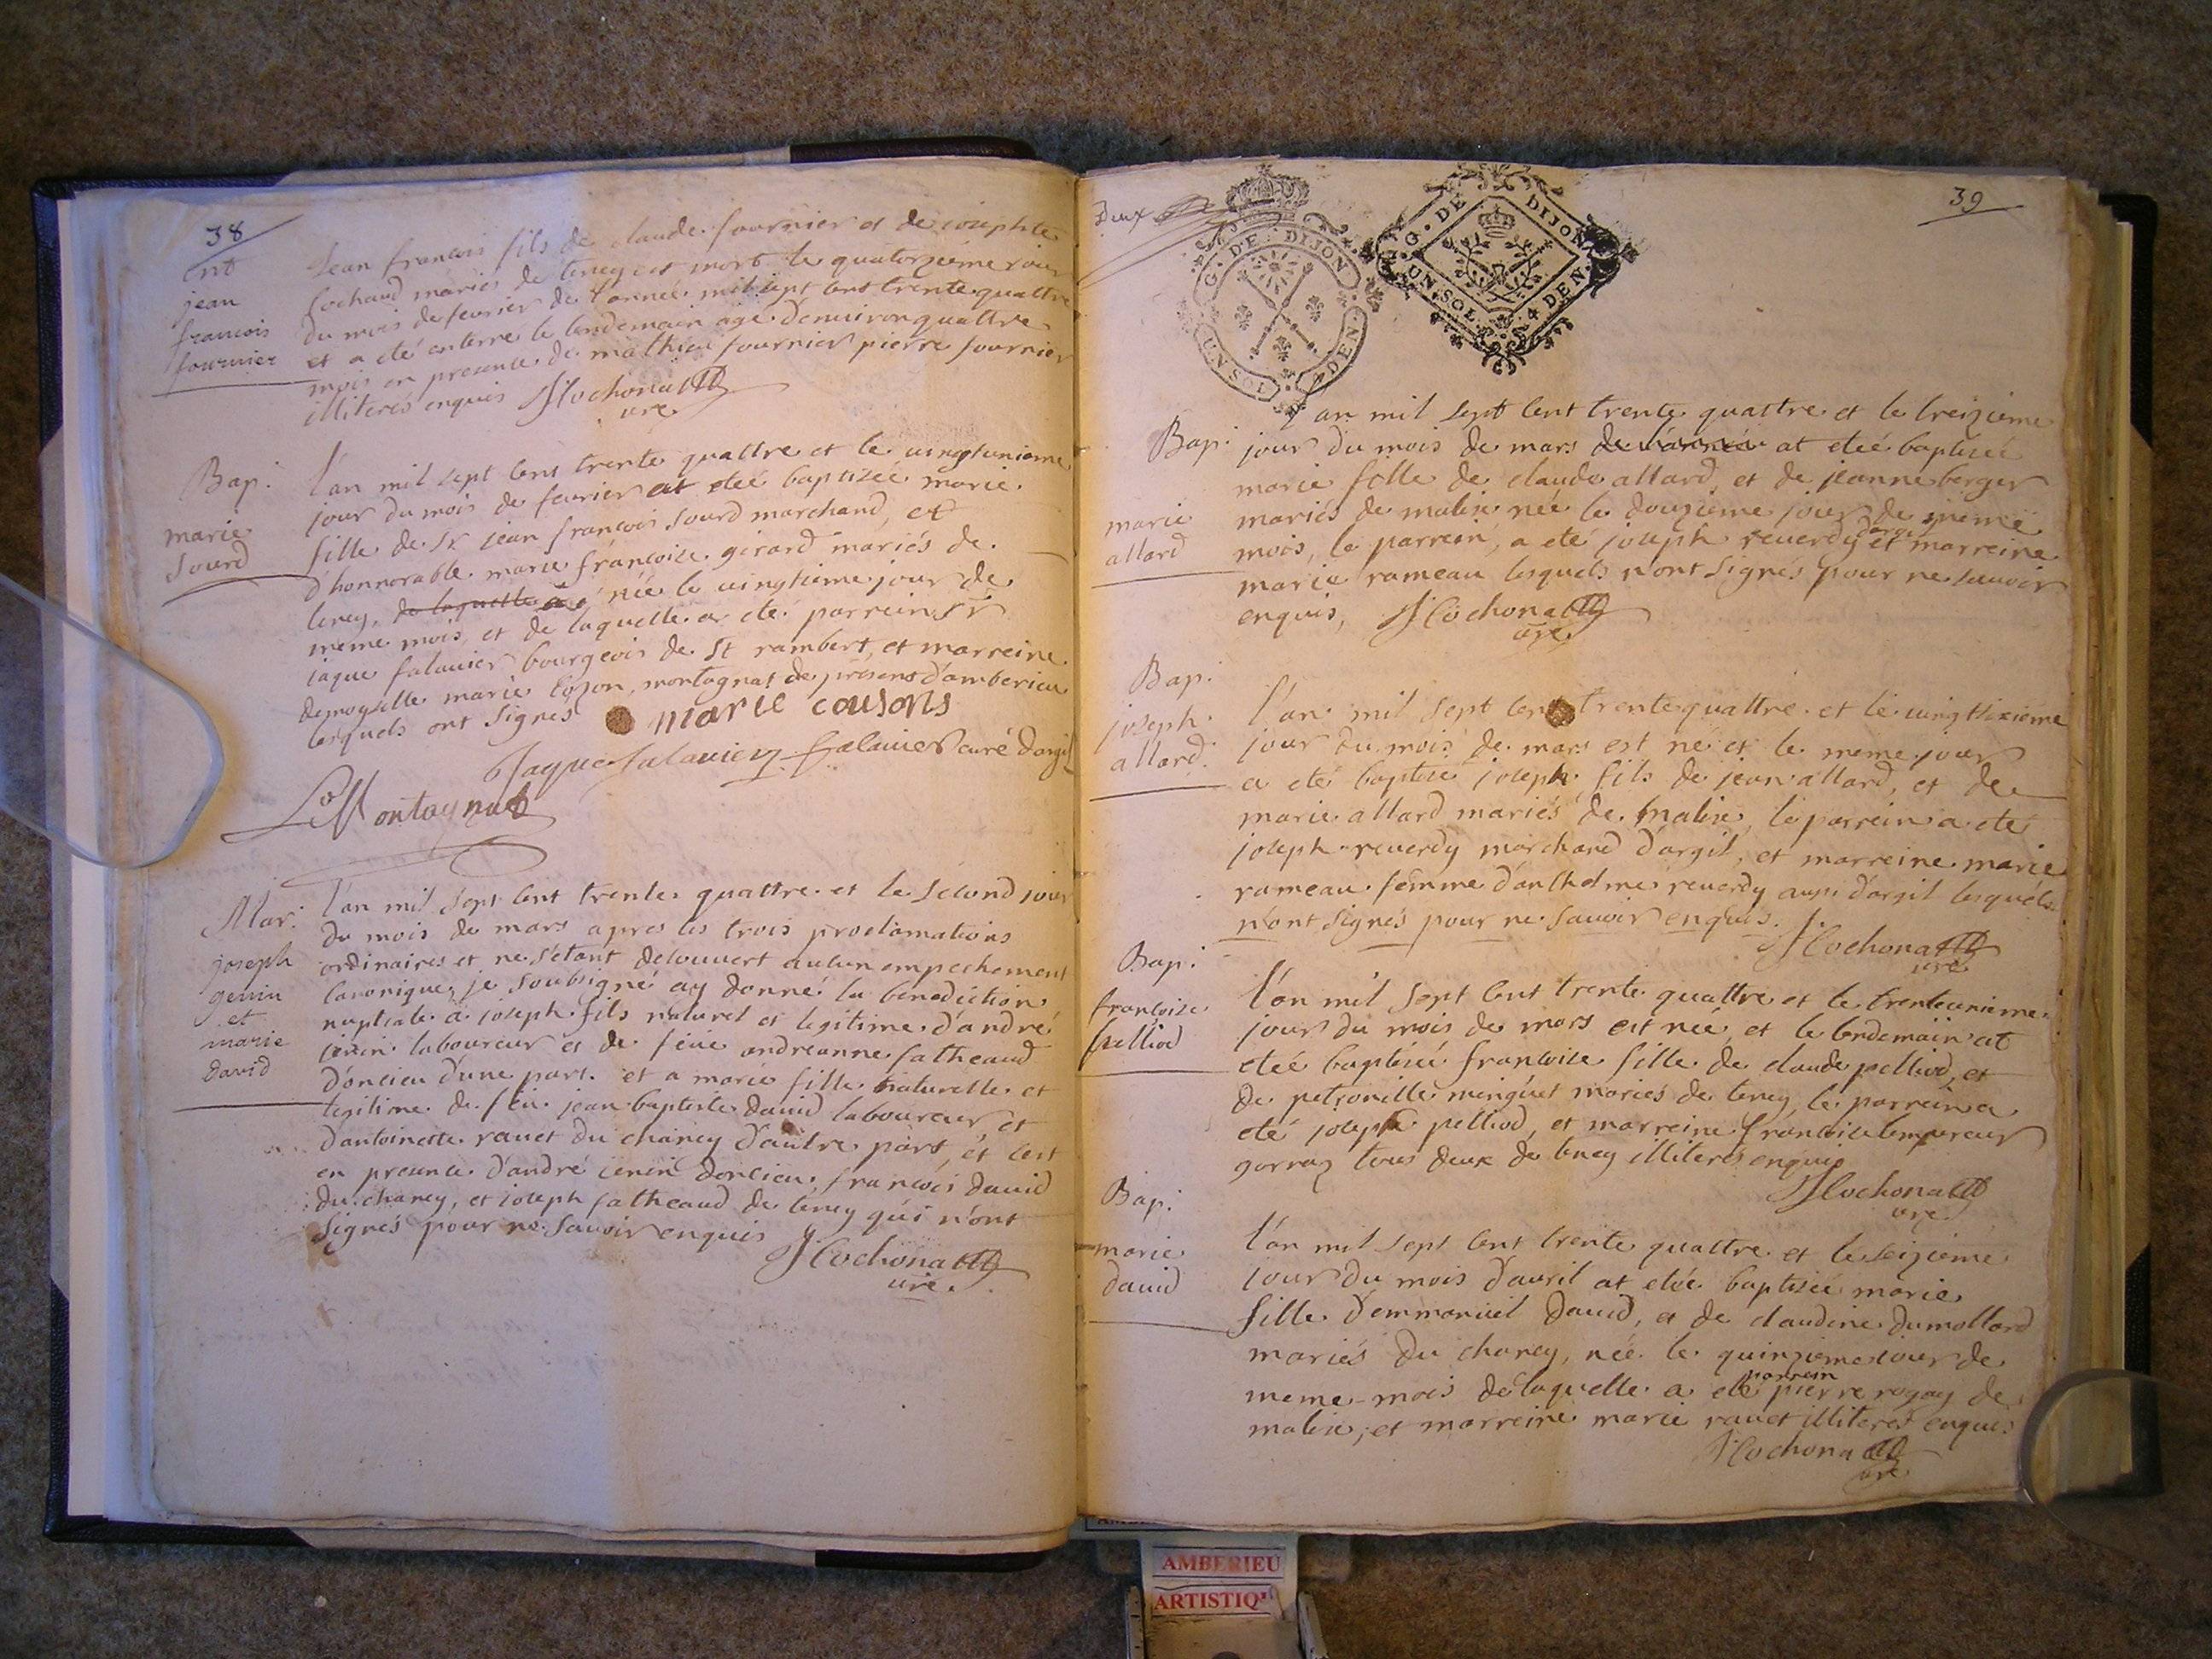 38
ent
jean
francois
fournier
Jean francois fils de claude fournier et de iosephte
Cochand mariés de teney est mort le quatorzieme iour
du mois de feurier de l'année mil sept cens trente quattre
et a eté enterré le lendemain agé d'enuiron quattre
mois en presence de mathieu fournier pierre fournier
illiterés enquis J Cochonat
curé
Bap.
marie
Sourd
l'an mil sept cens trente quattre et le uingtunieme
jour du mois de feurier at eteé baptizeé marie
fille de Sr jean francois Sourd marchand, et
d'honnorable marie francoise girard mariés de
teney, de laquelle a neé le uingtieme jour de
meme mois, et de laquelle a eté parrein Sr
iaque falauier bourgeois de St rambert, et marreine
demoyselle marie Cozon, montagnat de présens d'amberieu
lesquels ont Signés
marie cousons
Jaque falauier falauier curé d'argil
Montagnat
Mar.
joseph
genin
et
marie
david
l'an mil sept cent trente quattre et le second jour
du mois de mars apres les trois proclamations
ordinaires et ne s'étant decouuert aucun empechement
canonique, je soubsigné ay donné la benediction
nuptiale a joseph fils naturel et legitime d'andré
jenin laboureur et de feüe andreanne fatheaud
d'oncieu d'une part. et a marie fille naturelle et
legitime de feu jean baptiste dauid laboureur et
d'antoinette rauet du chaney d'autre part, et c'est
en presence d'andré ienin doncieu, francois dauid
du chaney, et ioseph fatheaud de teney qui n'ont
Signés pour ne Sauoir enquis J Cochonat
curé
39
Deux
G. DE DIJON
UN SOL 4 DEN.
G. DE DIJON
UN SOL 4 DEN.
Bap.
marie
allard
L'an mil sept cent trente quattre et le treizieme
jour du mois de mars de l'année at eteé baptiseé
marie fille de claude allard et de jeanne berger
mariés de malix neé le douzieme jour de meme
mois, le parrein, a eté joseph reuerdy d'argil et marreine
marie rameau lesquels n'ont Signés pour ne Sauoir
enquis, J Cochonat
curé
Bap.
joseph
allard.
l'an mil sept cent trente quattre et le uingtsixieme
jour du mois de mars est né et le meme jour
a eté baptisé joseph fils de jean allard, et de
marie allard mariés de malix, le parrein a eté
joseph reuerdy marchand d'argil, et marreine marie
rameau femme d'anthelme reuerdy aussi d'argil lesquels
n'ont Signés pour ne Sauoir enquis.
J Cochonat
curé
Bap.
francoise
pelliod
l'an mil sept cent trente quattre et le trenteunieme
jour du mois de mars est neé, et le lendemain at
eteé baptiseé francoise fille de claude pelliod, et
de petronille minguet mariés de teney, le parrein a
eté joseph pelliod, et marreine francoise lempereur
gorraz tous deux de teney illiterés enquis
J Cochonat
curé
Bap.
marie
dauid
l'an mil sept cent trente quattre et le seizieme
jour du mois d'auril at eteé baptiseé marie
fille d'emmanuel dauid, et de claudine dumollard
mariés du chaney, neé le quinzieme iour de
meme mois de laquelle a eté parrein pierre rogay de
malix, et marreine marie rauet illiterés enquis
J Cochonat
curé
AMBERIEU
ARTISTIQ